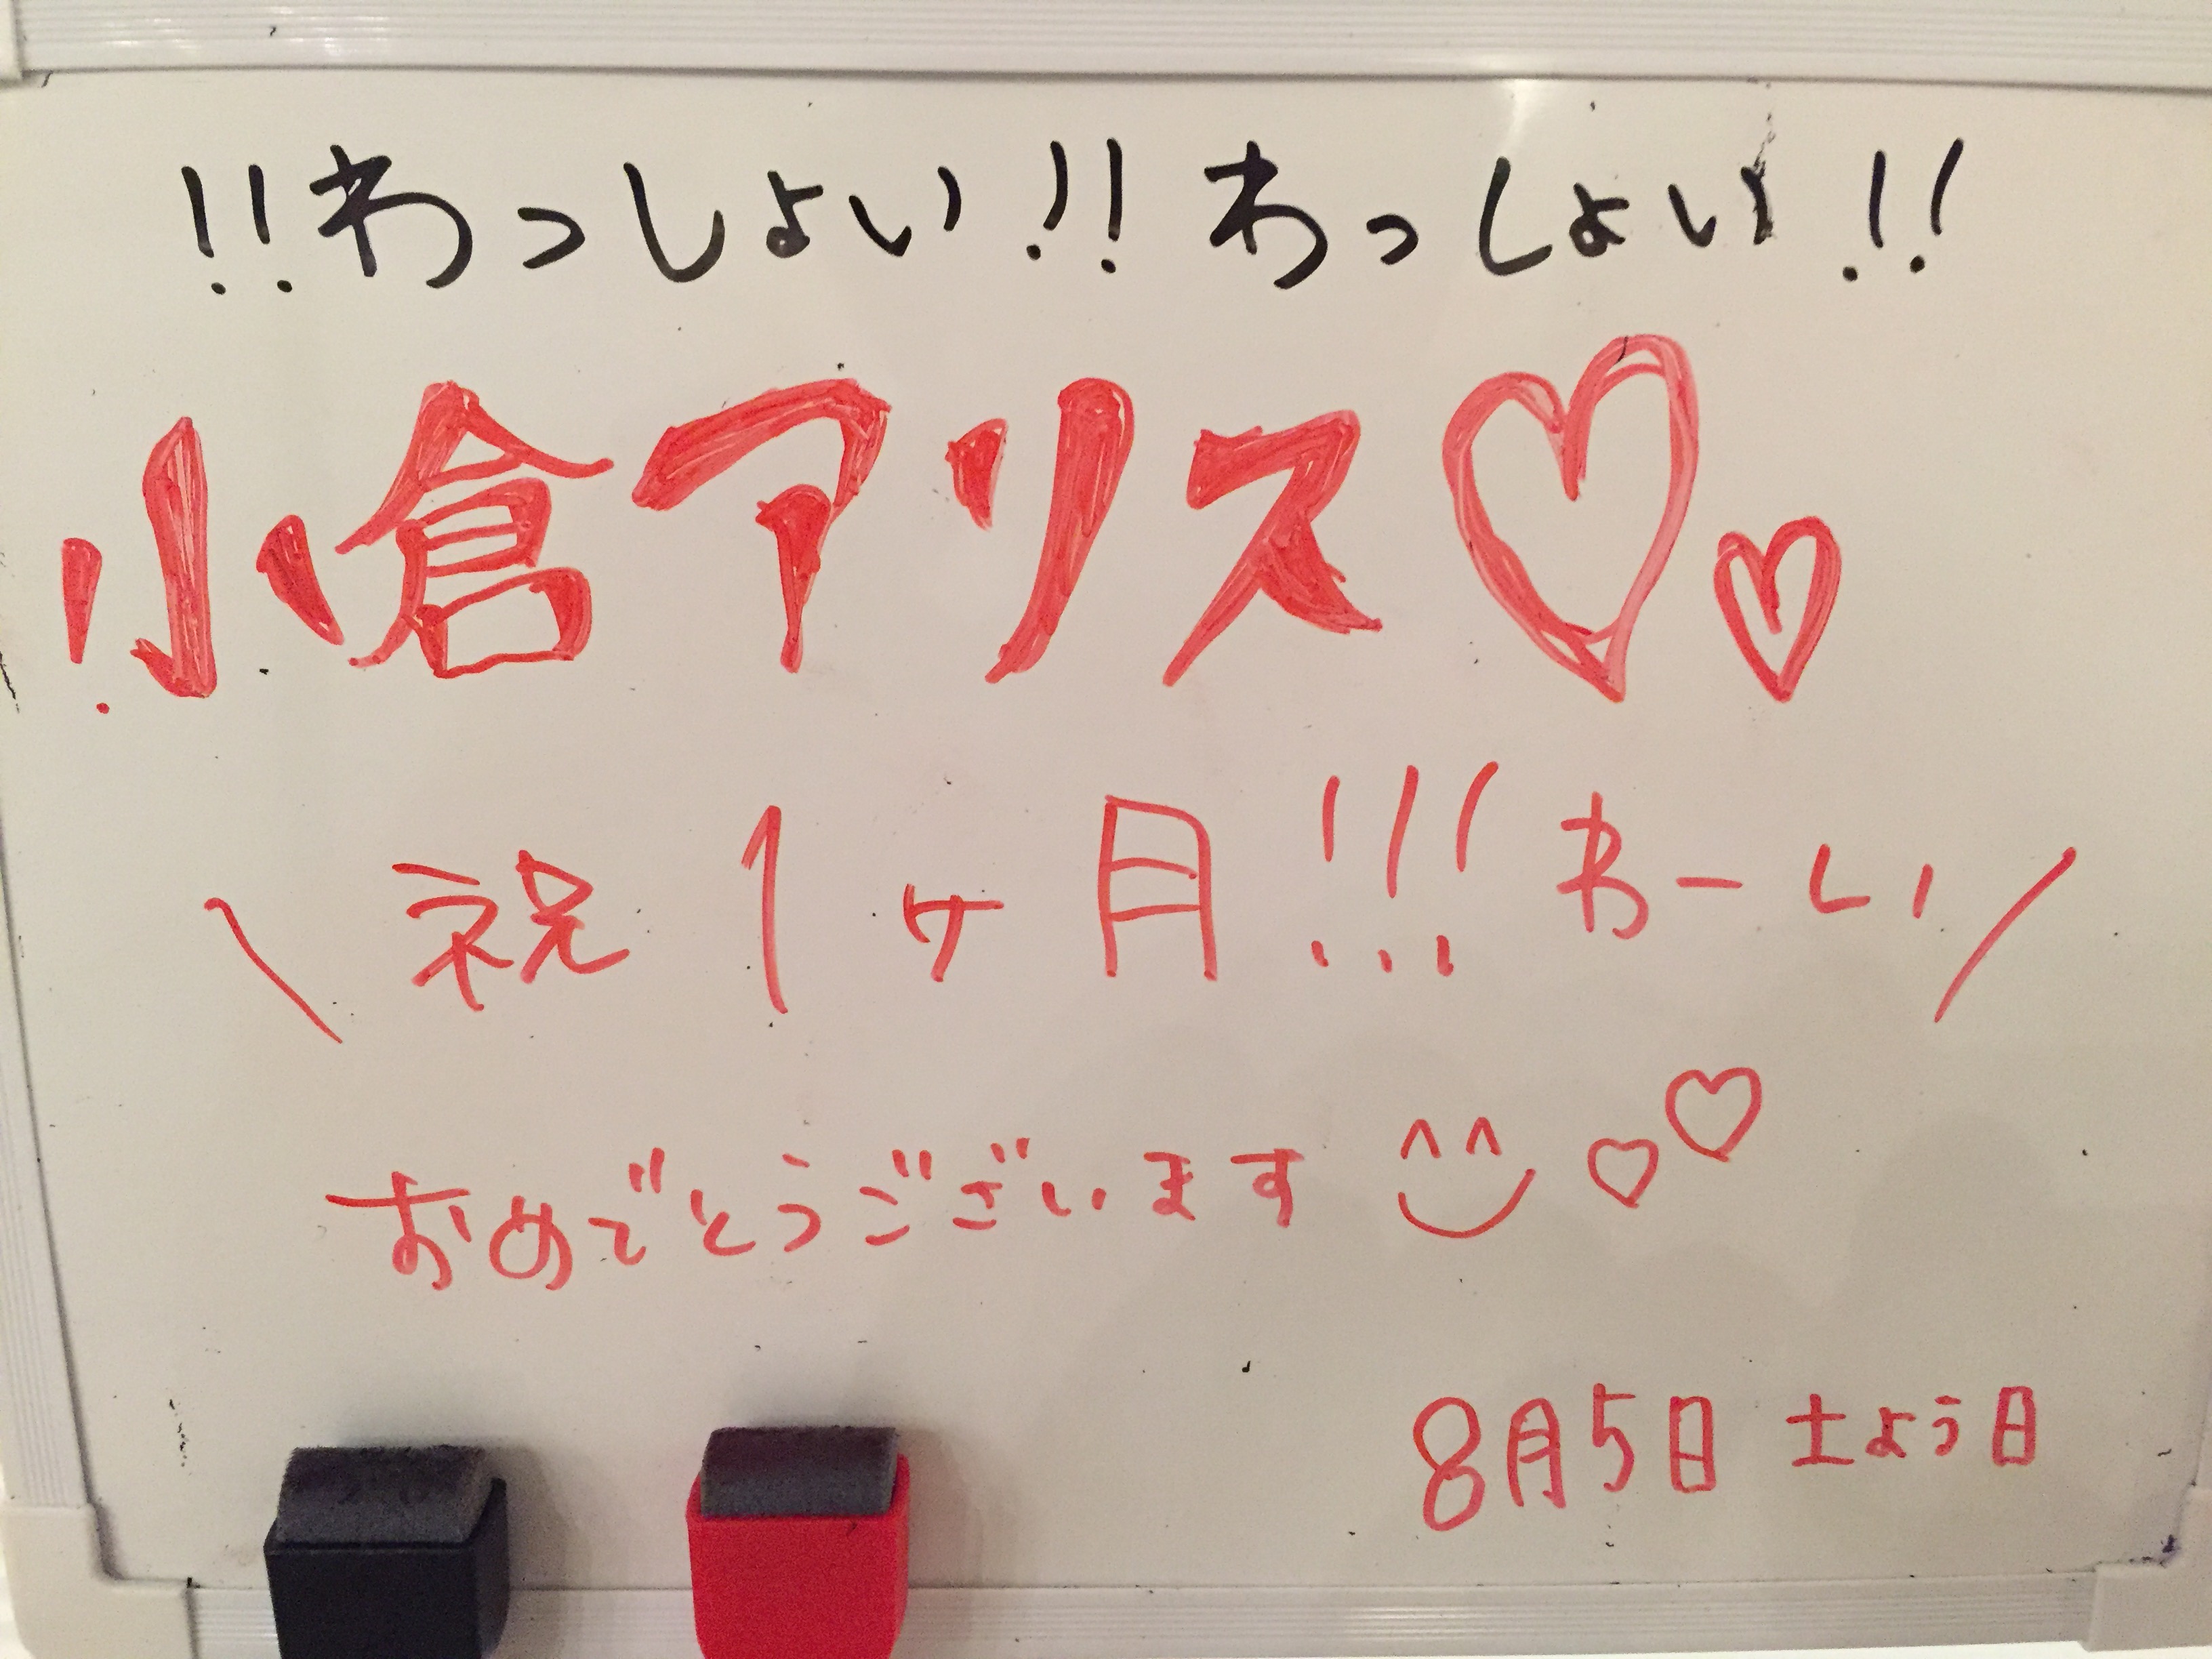 !!わっしょい!!わっしょい!!
小倉アリス♡♡
\ 祝1ヶ月!!!わーい /
おめでとうございます ^^ ♡♡
8月5日 土よう日